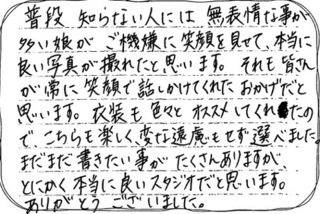 普段 知らない人には 無表情な事が
多い娘が ご機嫌に 笑顔を見せて、本当に
良い写真が 撮れたと思います。 それも 皆さん
が常に 笑顔で話しかけてくれた おかげだと
思います。 衣装も 色々と オススメしてくれたの
で、こちらも楽しく、変な遠慮もせず 選べました。
まだまだ 書きたい事が たくさんありますが、
とにかく 本当に良いスタジオだと思います。
ありがとう ございました。